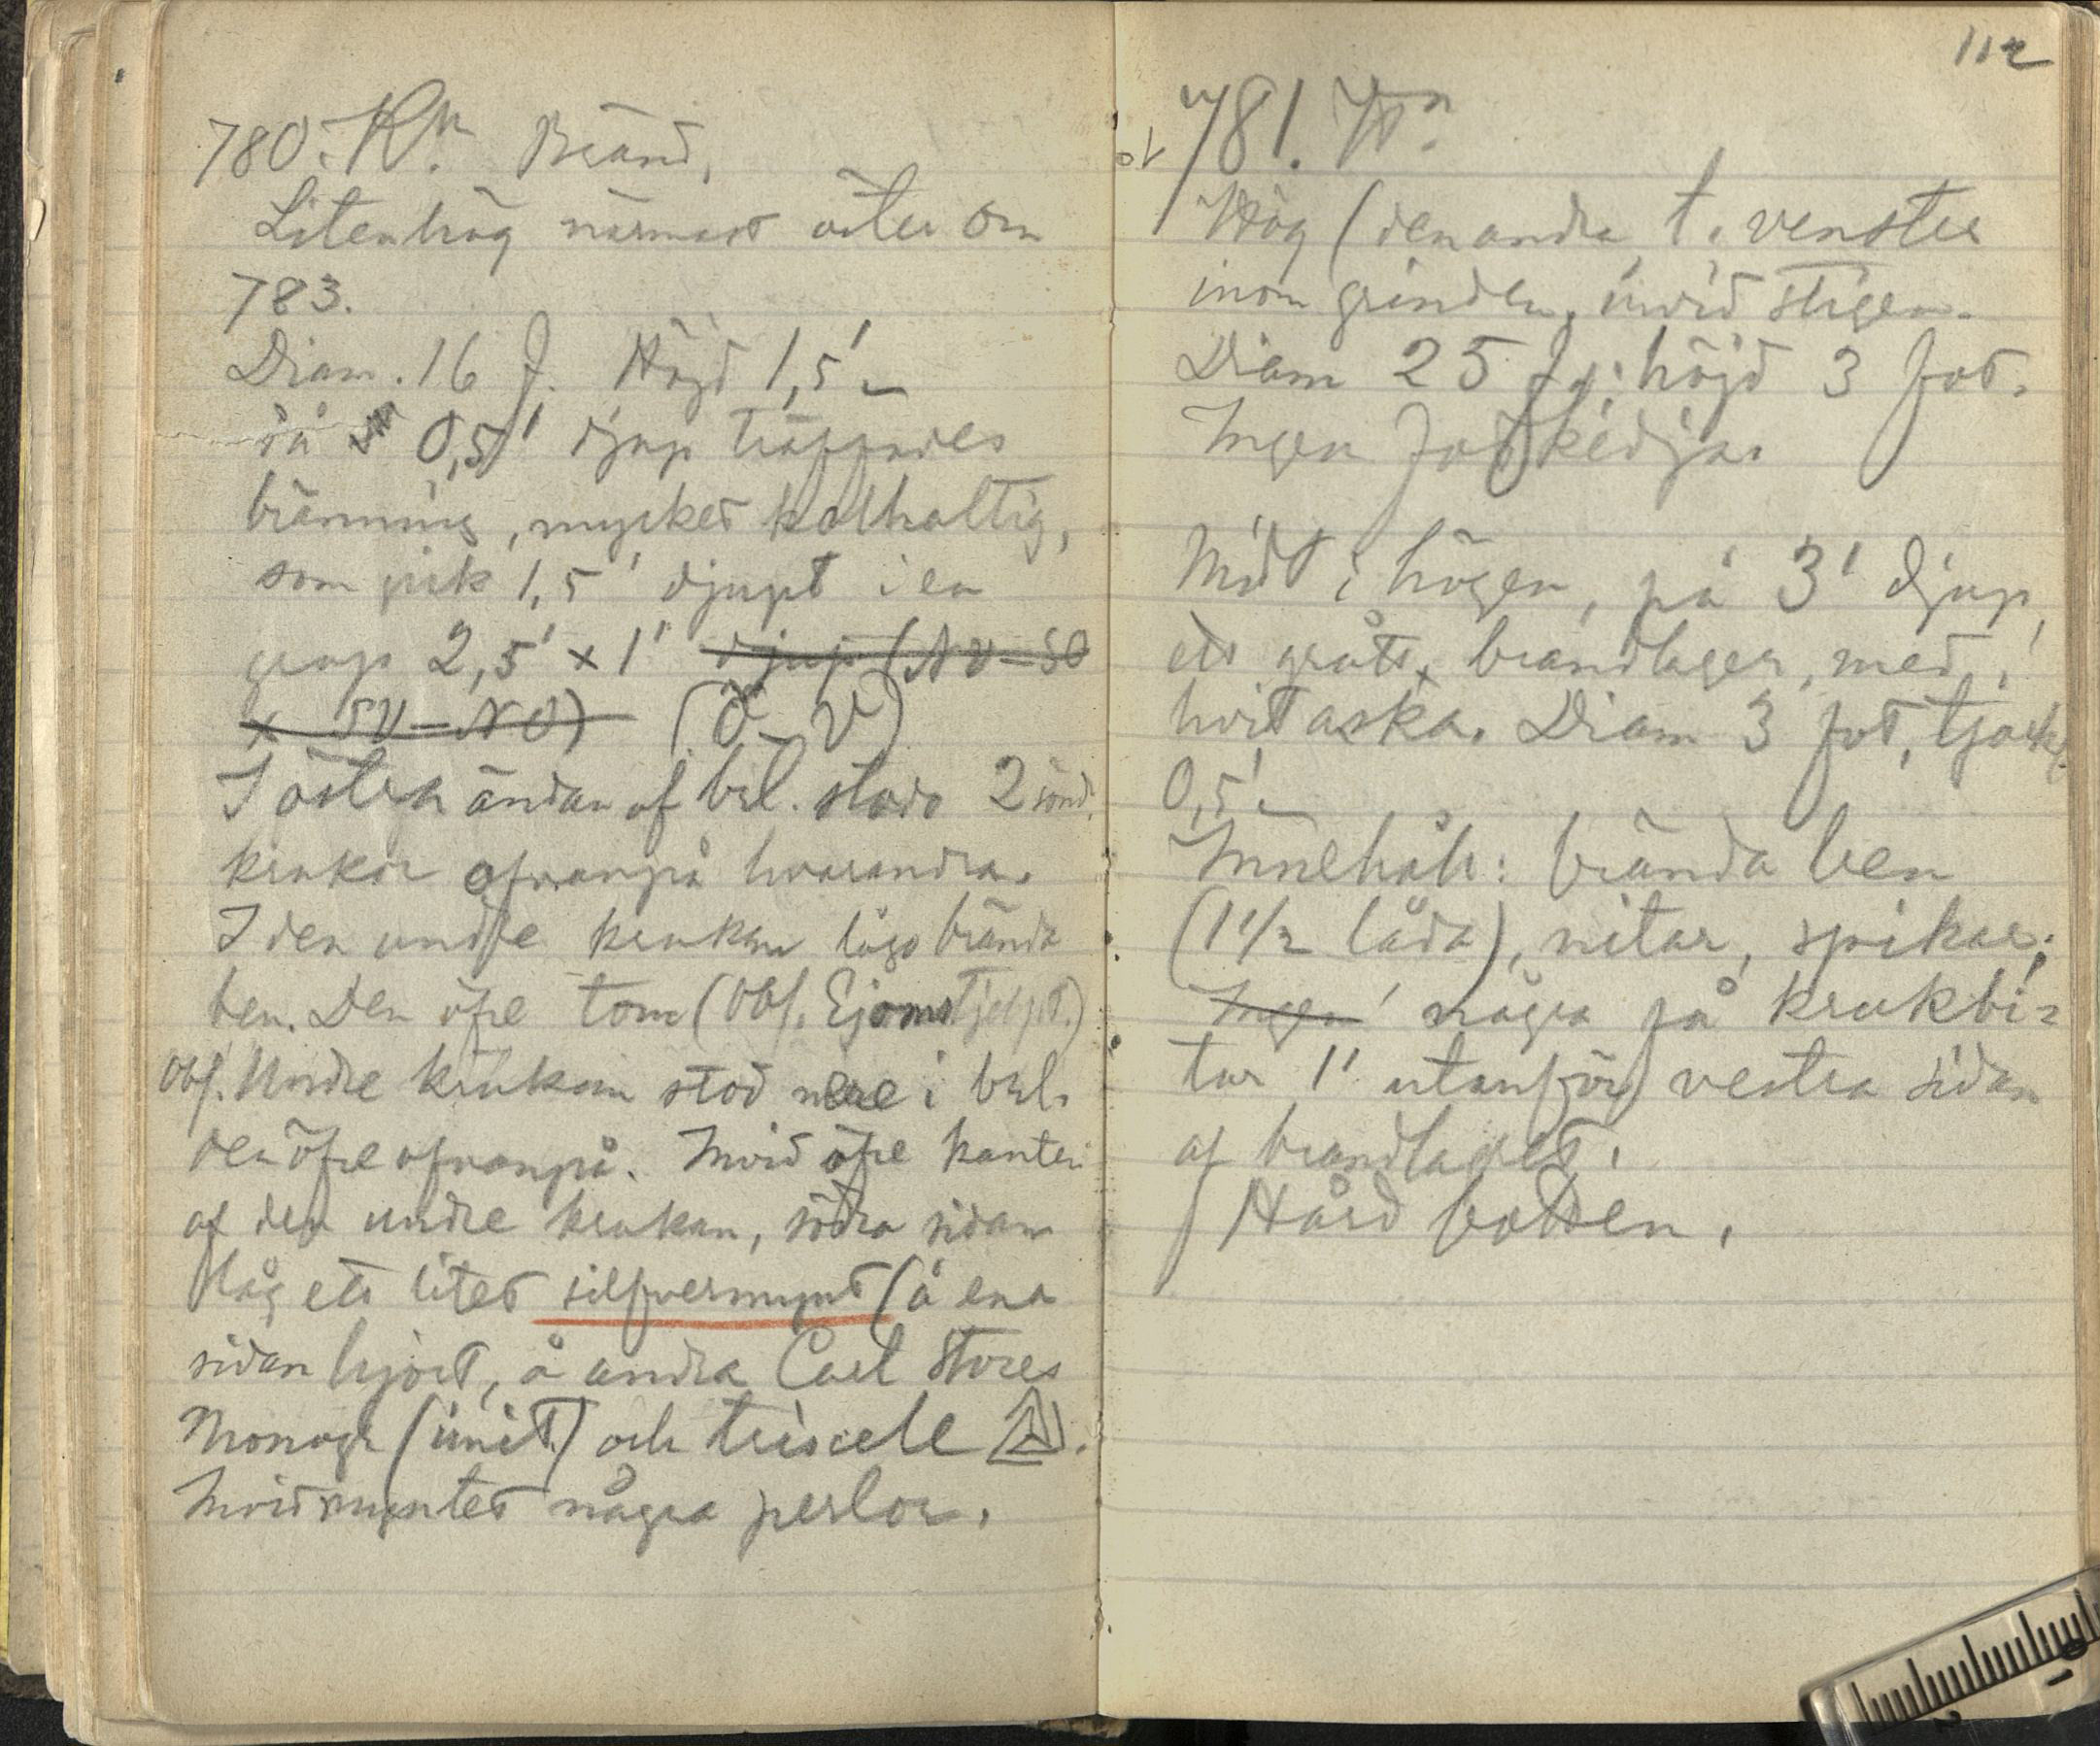 780. Kn. Bränd.
Liten hög närmast öster om
783.
Diam. 16 f. Höjd 1,5'.
På 0,5' djup träffades
bränning, mycket kolhaltig,
som gick 1,5' djupt i en
grop 2,5' × 1' djup (NV–SO
x SV–NO) (Ö–V)
I östra ändan af brl. stodo 2 sönd.
krukor ofvanpå hvarandra.
I den undre krukan lågo brända
ben. Den öfre tom (Obs. Ej omstjelpt.)
Obs. Undre krukan stod nere i brl.
den öfre ofvanpå. Invid öfre kanten
af den undre krukan, södra sidan
låg ett litet silfvermynt (å ena
sidan hjort, å andra Carl Stores
Monogr (imit.) och triscele .
Invid myntet några perlor.
112
781. Kn.
Hög (den andra t. venster
inom grinden, invid stigen.
Diam 25 f.; höjd 3 fot.
Ingen fotkedja.
Midt i högen, på 3' djup,
ett grått brandlager, med
hvit aska. Diam 3 fot, tjockl.
0,5'.
Innehåll: brända ben
(1 1/2 låda), nitar, spikar;
Ingen några få krukbi-
tar 1' utanför vestra sidan
af brandlagret.
Hård botten.